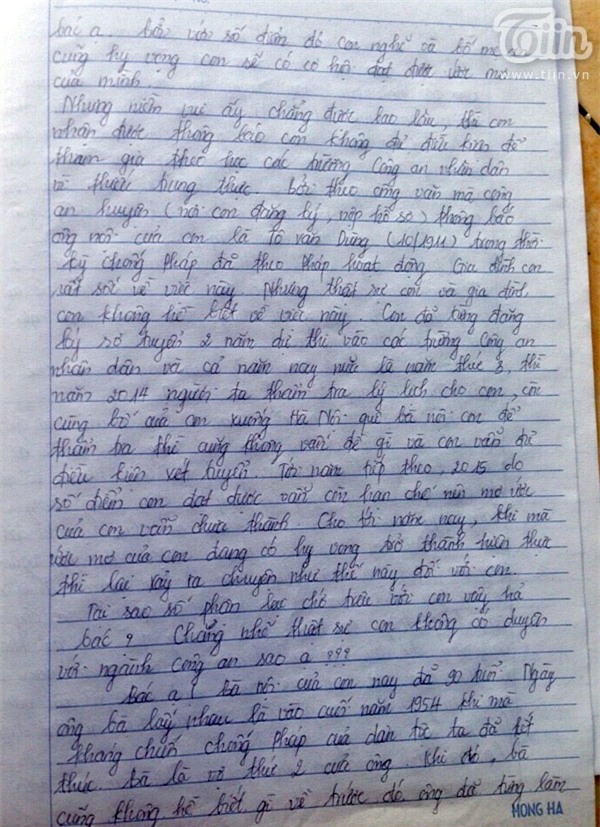 Tiin
www.tiin.vn
bác ạ. bởi với số điểm đó con nghĩ và bố mẹ
cũng hy vọng con sẽ có cơ hội đạt được ước mơ
của mình.
Nhưng niềm vui ấy chẳng được bao lâu, thì con
nhận được thông báo con không đủ điều kiện để
tham gia theo học các trường Công an nhân dân
vì thiếu trung thực. Bởi theo công văn mà công
an huyện (nơi con đăng ký, nộp hồ sơ) thông báo
ông nội của con là Tô Văn Dũng (10/1911) trong thời
kỳ chống Pháp đã theo Pháp hoạt động. Gia đình con
rất sốc về việc này. Nhưng thật sự con và gia đình
con không hề biết về việc này. Con đã từng đăng
ký sơ tuyển 2 năm dự thi vào các trường Công an
nhân dân và cả năm nay nữa là năm thứ 3, thì
năm 2014 người ta thẩm tra lý lịch cho con, còn
cùng bố của con xuống Hà Nội quê bà nội con để
thẩm tra thì cũng không vấn đề gì và con vẫn đủ
điều kiện xét tuyển. Tới năm tiếp theo, 2015 do
số điểm con đạt được vẫn còn hạn chế nên mơ ước
của con vẫn chưa thành. Cho tới năm nay, khi mà
ước mơ của con đang có hy vọng trở thành hiện thực
thì lại xảy ra chuyện như thế này đối với con.
Tại sao số phận lại chớ trêu với con vậy hả
bác? Chẳng nhẽ thật sự con không có duyên
với ngành công an sao ạ ???
Bác ạ! bà nội của con nay đã 90 tuổi. Ngày
ông bà lấy nhau là vào cuối năm 1954 khi mà
kháng chiến chống Pháp của dân tộc ta đã kết
thúc. bà là vợ thứ 2 của ông. Khi đó, bà
cũng không hề biết gì về trước đó ông đã từng làm
HONG HA